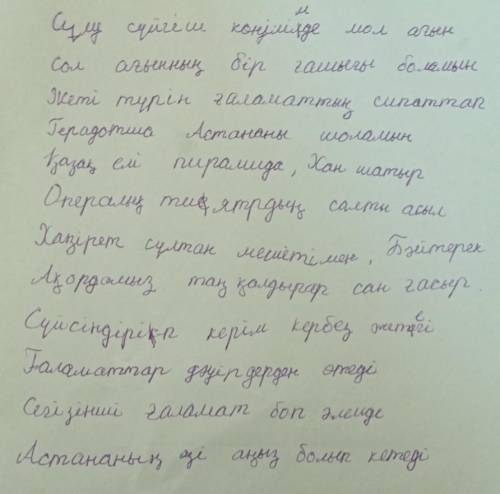 Сұлу сүйгіш көңілімде мол ағын
Сол ағынның бір ғашығы боламын
Жеті түрін ғаламаттың сипаттап
Герадотша Астананы шоламын
Қазақ елі пирамида, Хан шатыр
Опералық тиятрдың салты асыл
Хазірет сұлтан мешітімен, Бәйтерек
Ақордамыз таң қалдырар сан ғасыр.
Сүйсіндіріп керім кербез жетегі
Ғаламаттар дәуірдерден өтеді
Сегізінші ғаламат боп әлемде
Астананың өзі аңыз болып кетеді